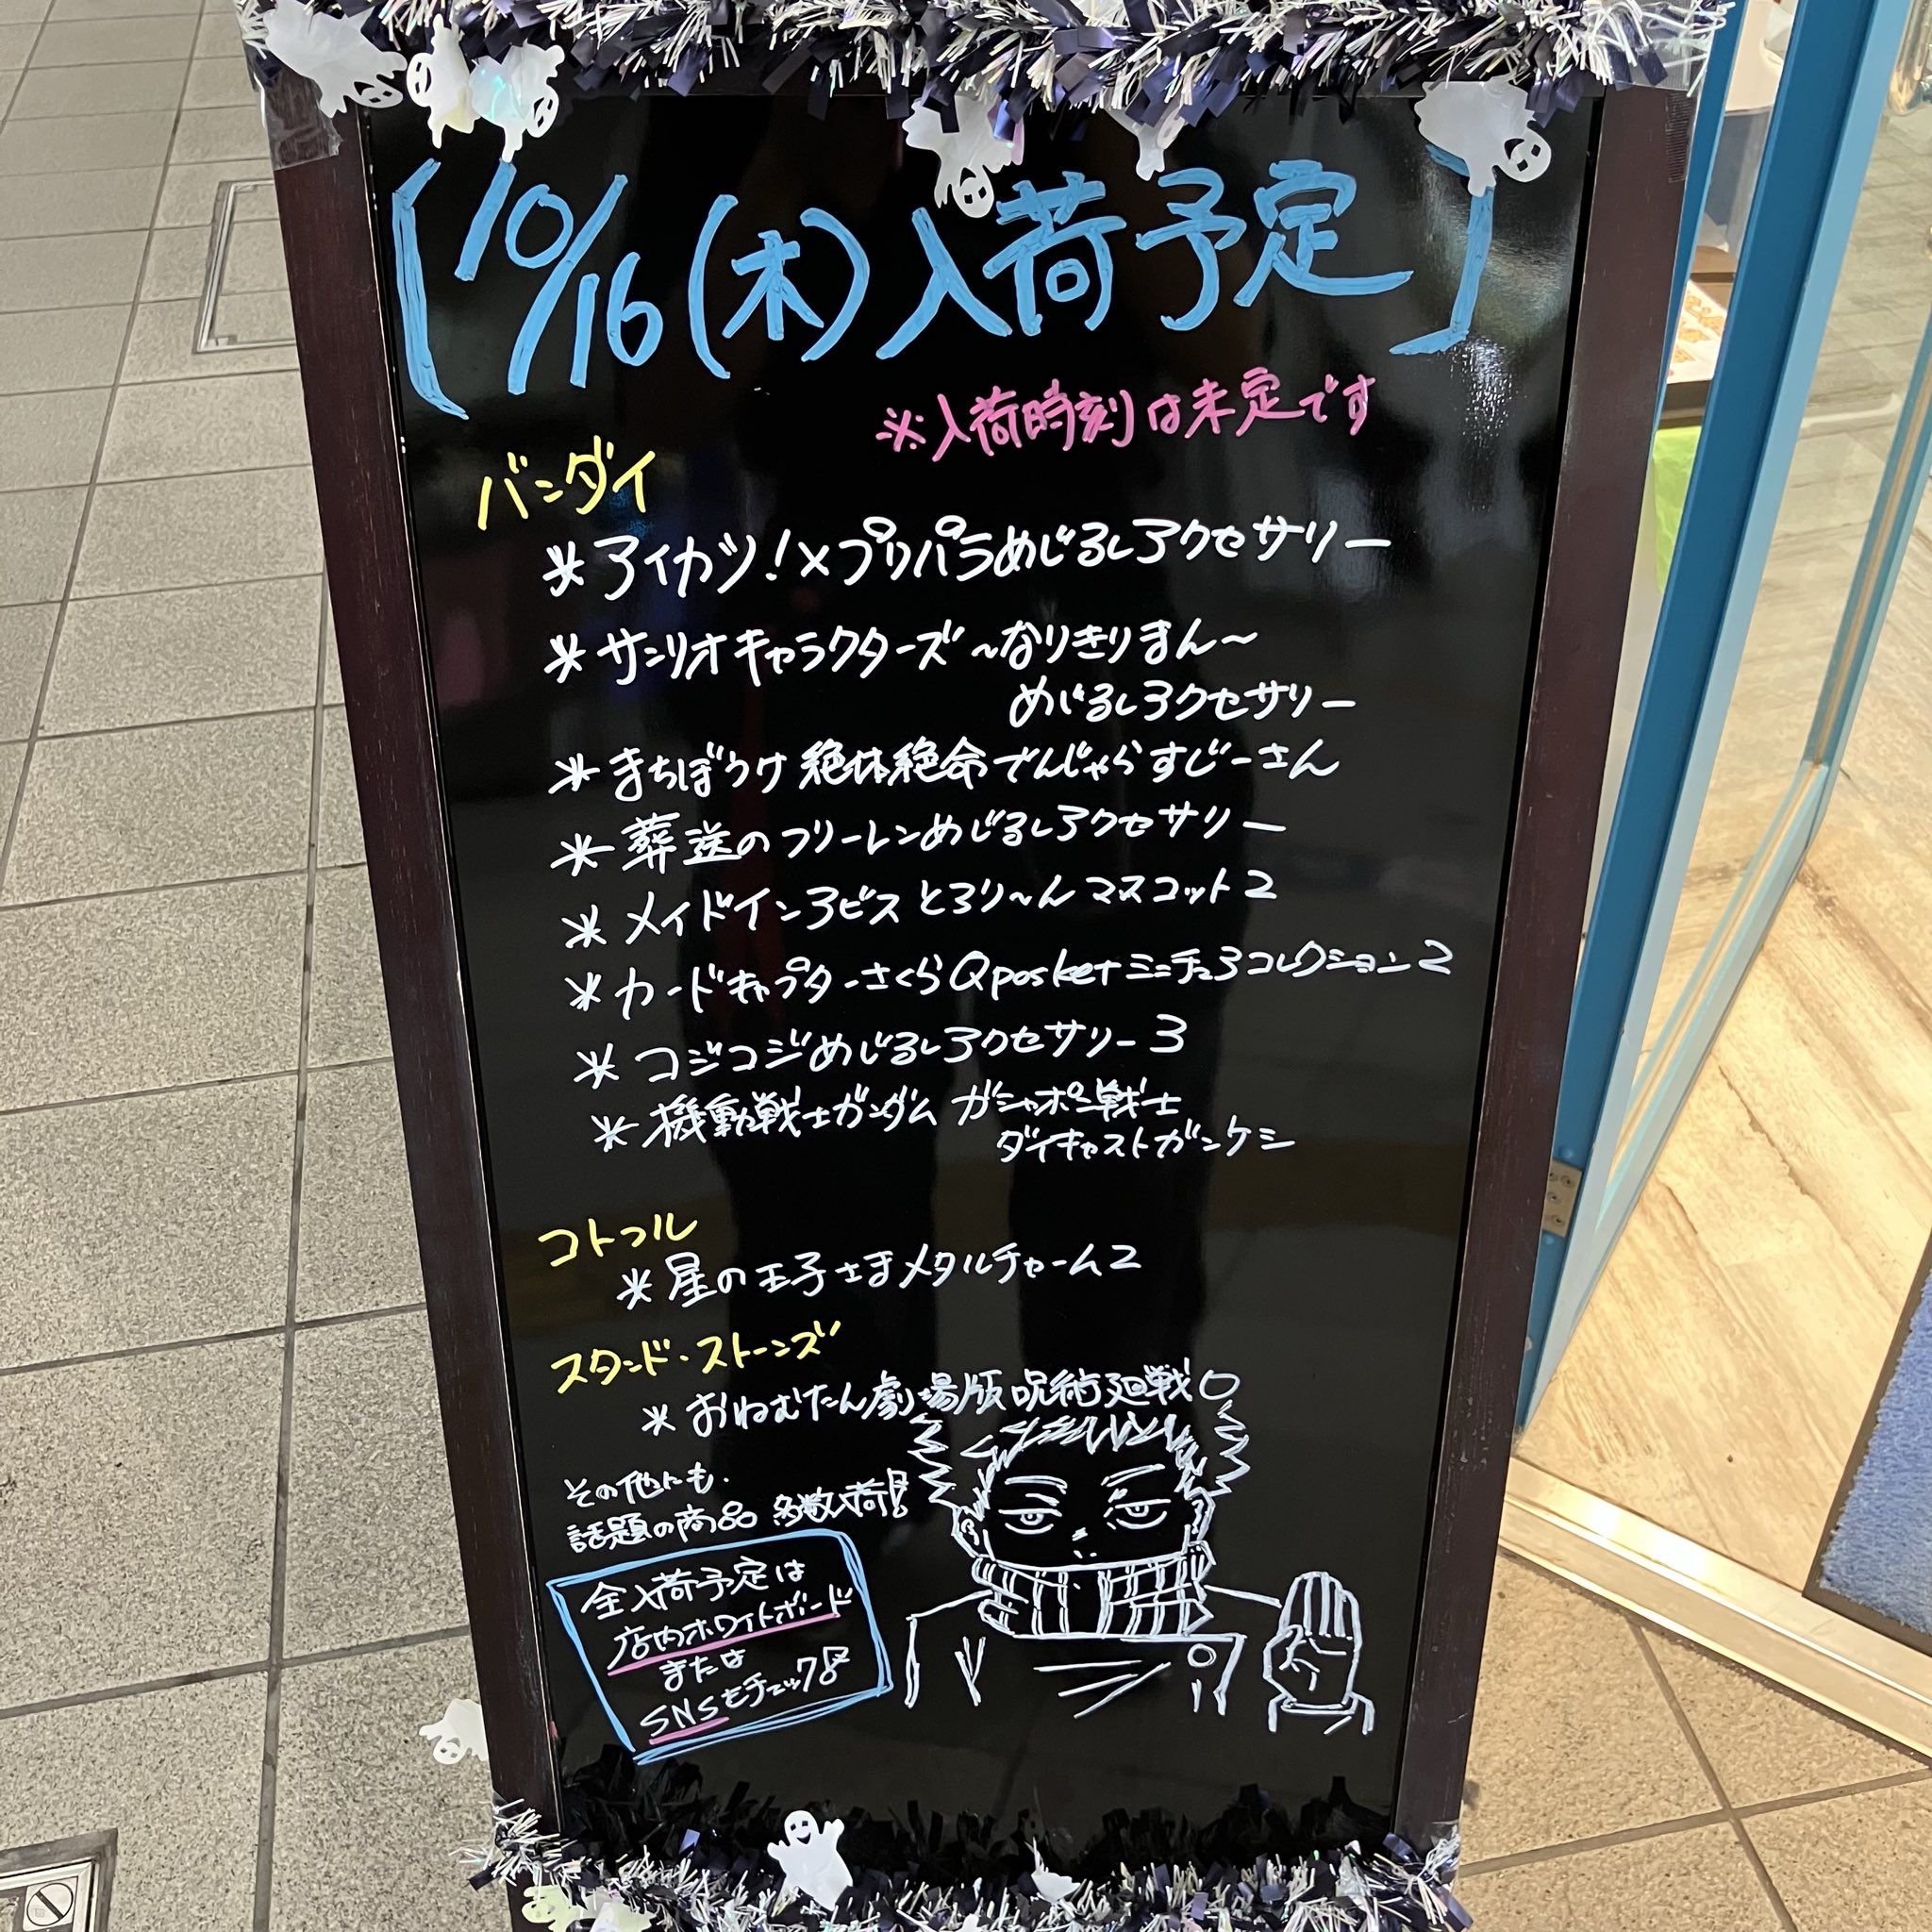 [10/16(木)入荷予定]
※入荷時刻は未定です
バンダイ
*アイカツ!×プリパラめじるしアクセサリー
*サンリオキャラクターズ〜なりきりまん〜
めじるしアクセサリー
*まちぼうけ 絶体絶命でんじゃらすじーさん
*葬送のフリーレンめじるしアクセサリー
*メイドインアビス とろり〜ん マスコット2
*カードキャプターさくら Qposket ミニチュアコレクション2
*コジコジめじるしアクセサリー3
*機動戦士ガンダム ガシャポン戦士
ダイキャストガンケシ
コトフル
*星の王子さまメタルチャーム2
スタンド・ストーンズ
*おねむたん劇場版 呪術廻戦0
その他にも、
話題の商品 多数入荷!
全入荷予定は
店内ホワイトボード
または
SNSをチェック